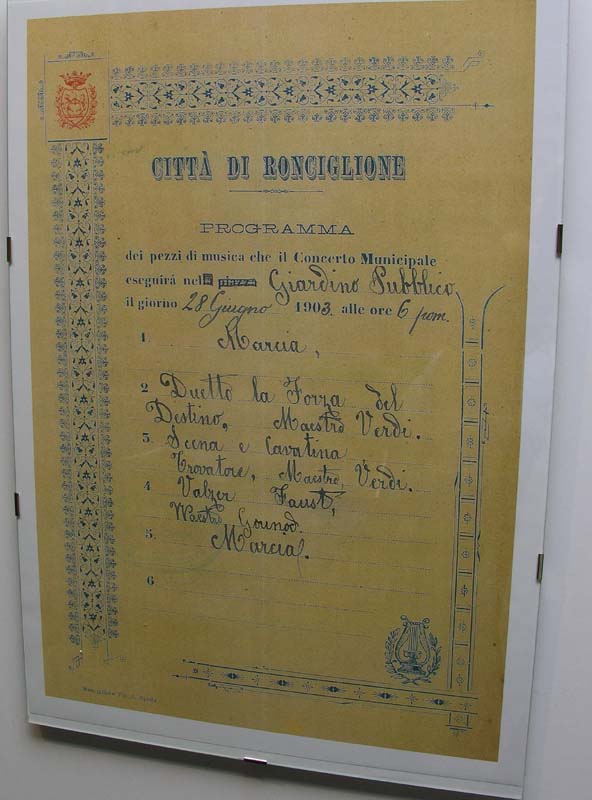 CITTÀ DI RONCIGLIONE
PROGRAMMA
dei pezzi di musica che il Concerto Municipale
eseguirà nel Giardino Pubblico
il giorno 28 Giugno 1903. alle ore 6 pom.
1. Marcia,
2 Duetto la Forza del
Destino, Maestro Verdi.
3. Scena e Cavatina
Trovatore, Maestro, Verdi.
4 Valzer Faust,
Maestro Gounod.
5. Marcia.
6